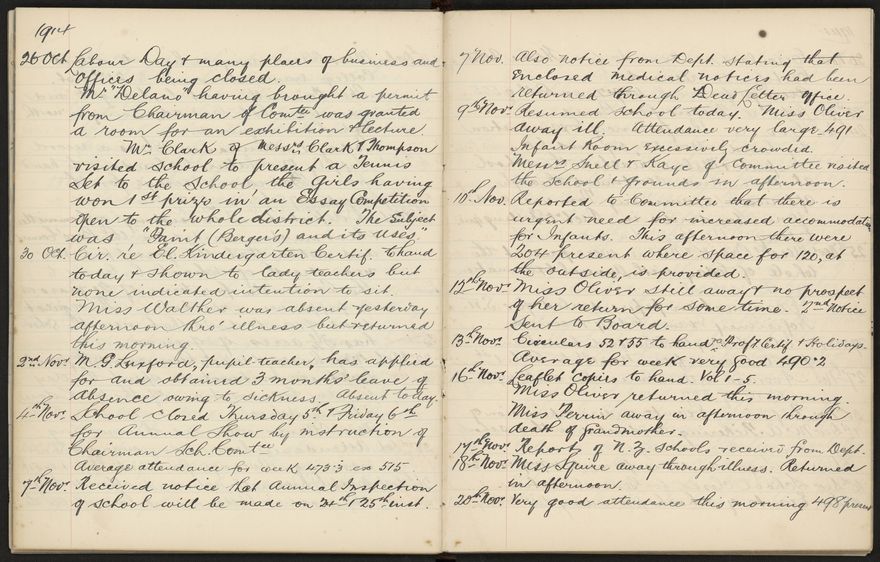 1914
26 Oct Labour Day & many places of business and
Offices being closed.
Mr "Delano" having brought a permit
from Chairman of Comtee was granted
a room for an exhibition & lecture.
Mr Clark of Messrs Clark & Thompson
visited school to present a Tennis
Set to the School the Girls having
won 1st prize in an Essay Competition
open to the whole district. The Subject
was "Paint (Berger's) and its Uses"
30 Oct. Cir. re El. Kindergarten Certif. to hand
today & shown to lady teachers but
none indicated intention to sit.
Miss Walther was absent yesterday
afternoon thro' illness but returned
this morning.
2nd Nov. M. G. Luxford, pupil-teacher, has applied
for and obtained 3 months' leave of
absence owing to sickness. Absent today.
4th Nov. School closed Thursday 5th & Friday 6th
for Annual Show by instruction of
Chairman Sch. Comtee
Average attendance for week 473.3 ex 515
7th Nov. Received notice that Annual Inspection
of school will be made on 24th & 25th inst.
7 Nov. Also notice from Dept. stating that
enclosed medical notices had been
returned through Dead Letter office.
9th Nov. Resumed school today. Miss Oliver
away ill. Attendance very large 491
Infant Room excessively crowded.
Messrs Snell & Kaye of Committee visited
the School & grounds in afternoon.
10th Nov. Reported to Committee that there is
urgent need for increased accommodation
for Infants. This afternoon there were
204 present where space for 120, at
the outside, is provided.
12th Nov. Miss Oliver still away & no prospect
of her return for some time. 2nd Notice
sent to Board.
13th Nov. Circulars 52 & 55 to hand re Draft Certif & Holidays.
Average for week very good 490.2
16th Nov. Leaflet Copies to hand. Vol 1-5.
Miss Oliver returned this morning.
Miss Perrin away in afternoon through
death of grandmother.
17th Nov. Report of N.Z. Schools received from Dept.
18th Nov. Miss Squire away through illness. Returned
in afternoon.
20th Nov. Very good attendance this morning 498 present